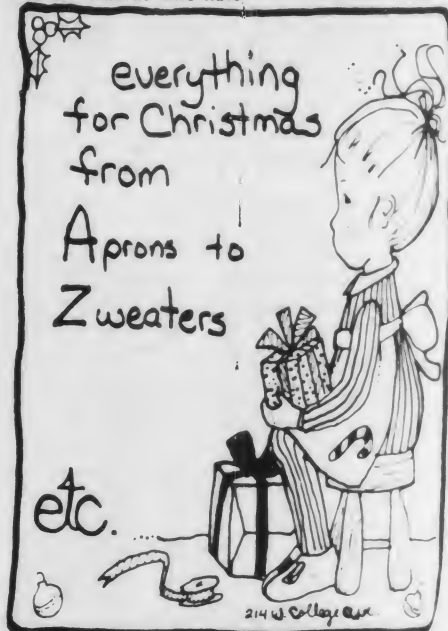 everything
for Christmas
from
Aprons to
Zweaters
etc.
214 W. College Ave.